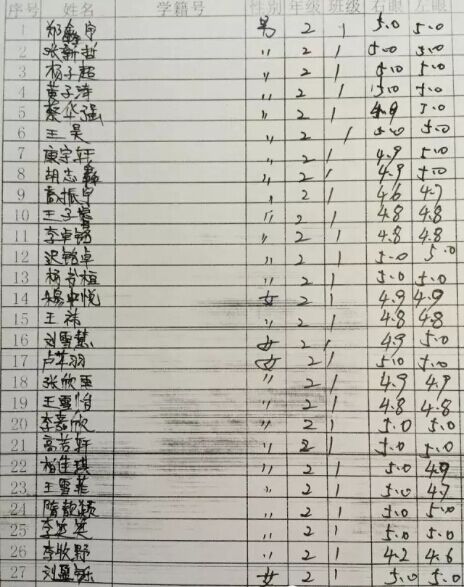 序号 姓名 学籍号 性别 年级 班级 右眼 左眼
1 郑鑫宇 男 2 1 5.0 5.0
2 张新哲 〃 2 1 5.0 5.0
3 杨子超 〃 2 1 5.0 5.0
4 黄子涛 〃 2 1 5.0 5.0
5 蔡华强 〃 2 1 4.9 5.0
6 王昊 〃 2 1 5.0 5.0
7 康宇轩 〃 2 1 4.9 5.0
8 胡志鑫 〃 2 1 4.9 5.0
9 高振宇 〃 2 1 4.6 4.7
10 王子 〃 2 1 4.8 4.8
11 李卓 〃 2 1 4.8 4.8
12 卓 〃 2 1 5.0 5.0
13 杨 〃 2 1 5.0 5.0
14 悦 女 2 1 4.9 4.9
15 王 〃 2 1 4.8 4.8
16 刘雪慧 女 2 1 4.9 5.0
17 卢羽 女 2 1 5.0 5.0
18 张欣 〃 2 1 4.9 4.9
19 王雪怡 〃 2 1 4.8 4.8
20 李嘉欣 〃 2 1 5.0 5.0
21 高若轩 〃 2 1 5.0 5.0
22 佳琪 〃 2 1 5.0 4.9
23 王雪菲 〃 2 1 5.0 4.7
24 隋歆颖 〃 2 1 5.0 5.0
25 李英 〃 2 1 5.0 5.0
26 李牧野 〃 2 1 4.2 4.6
27 刘 女 2 1 5.0 5.0